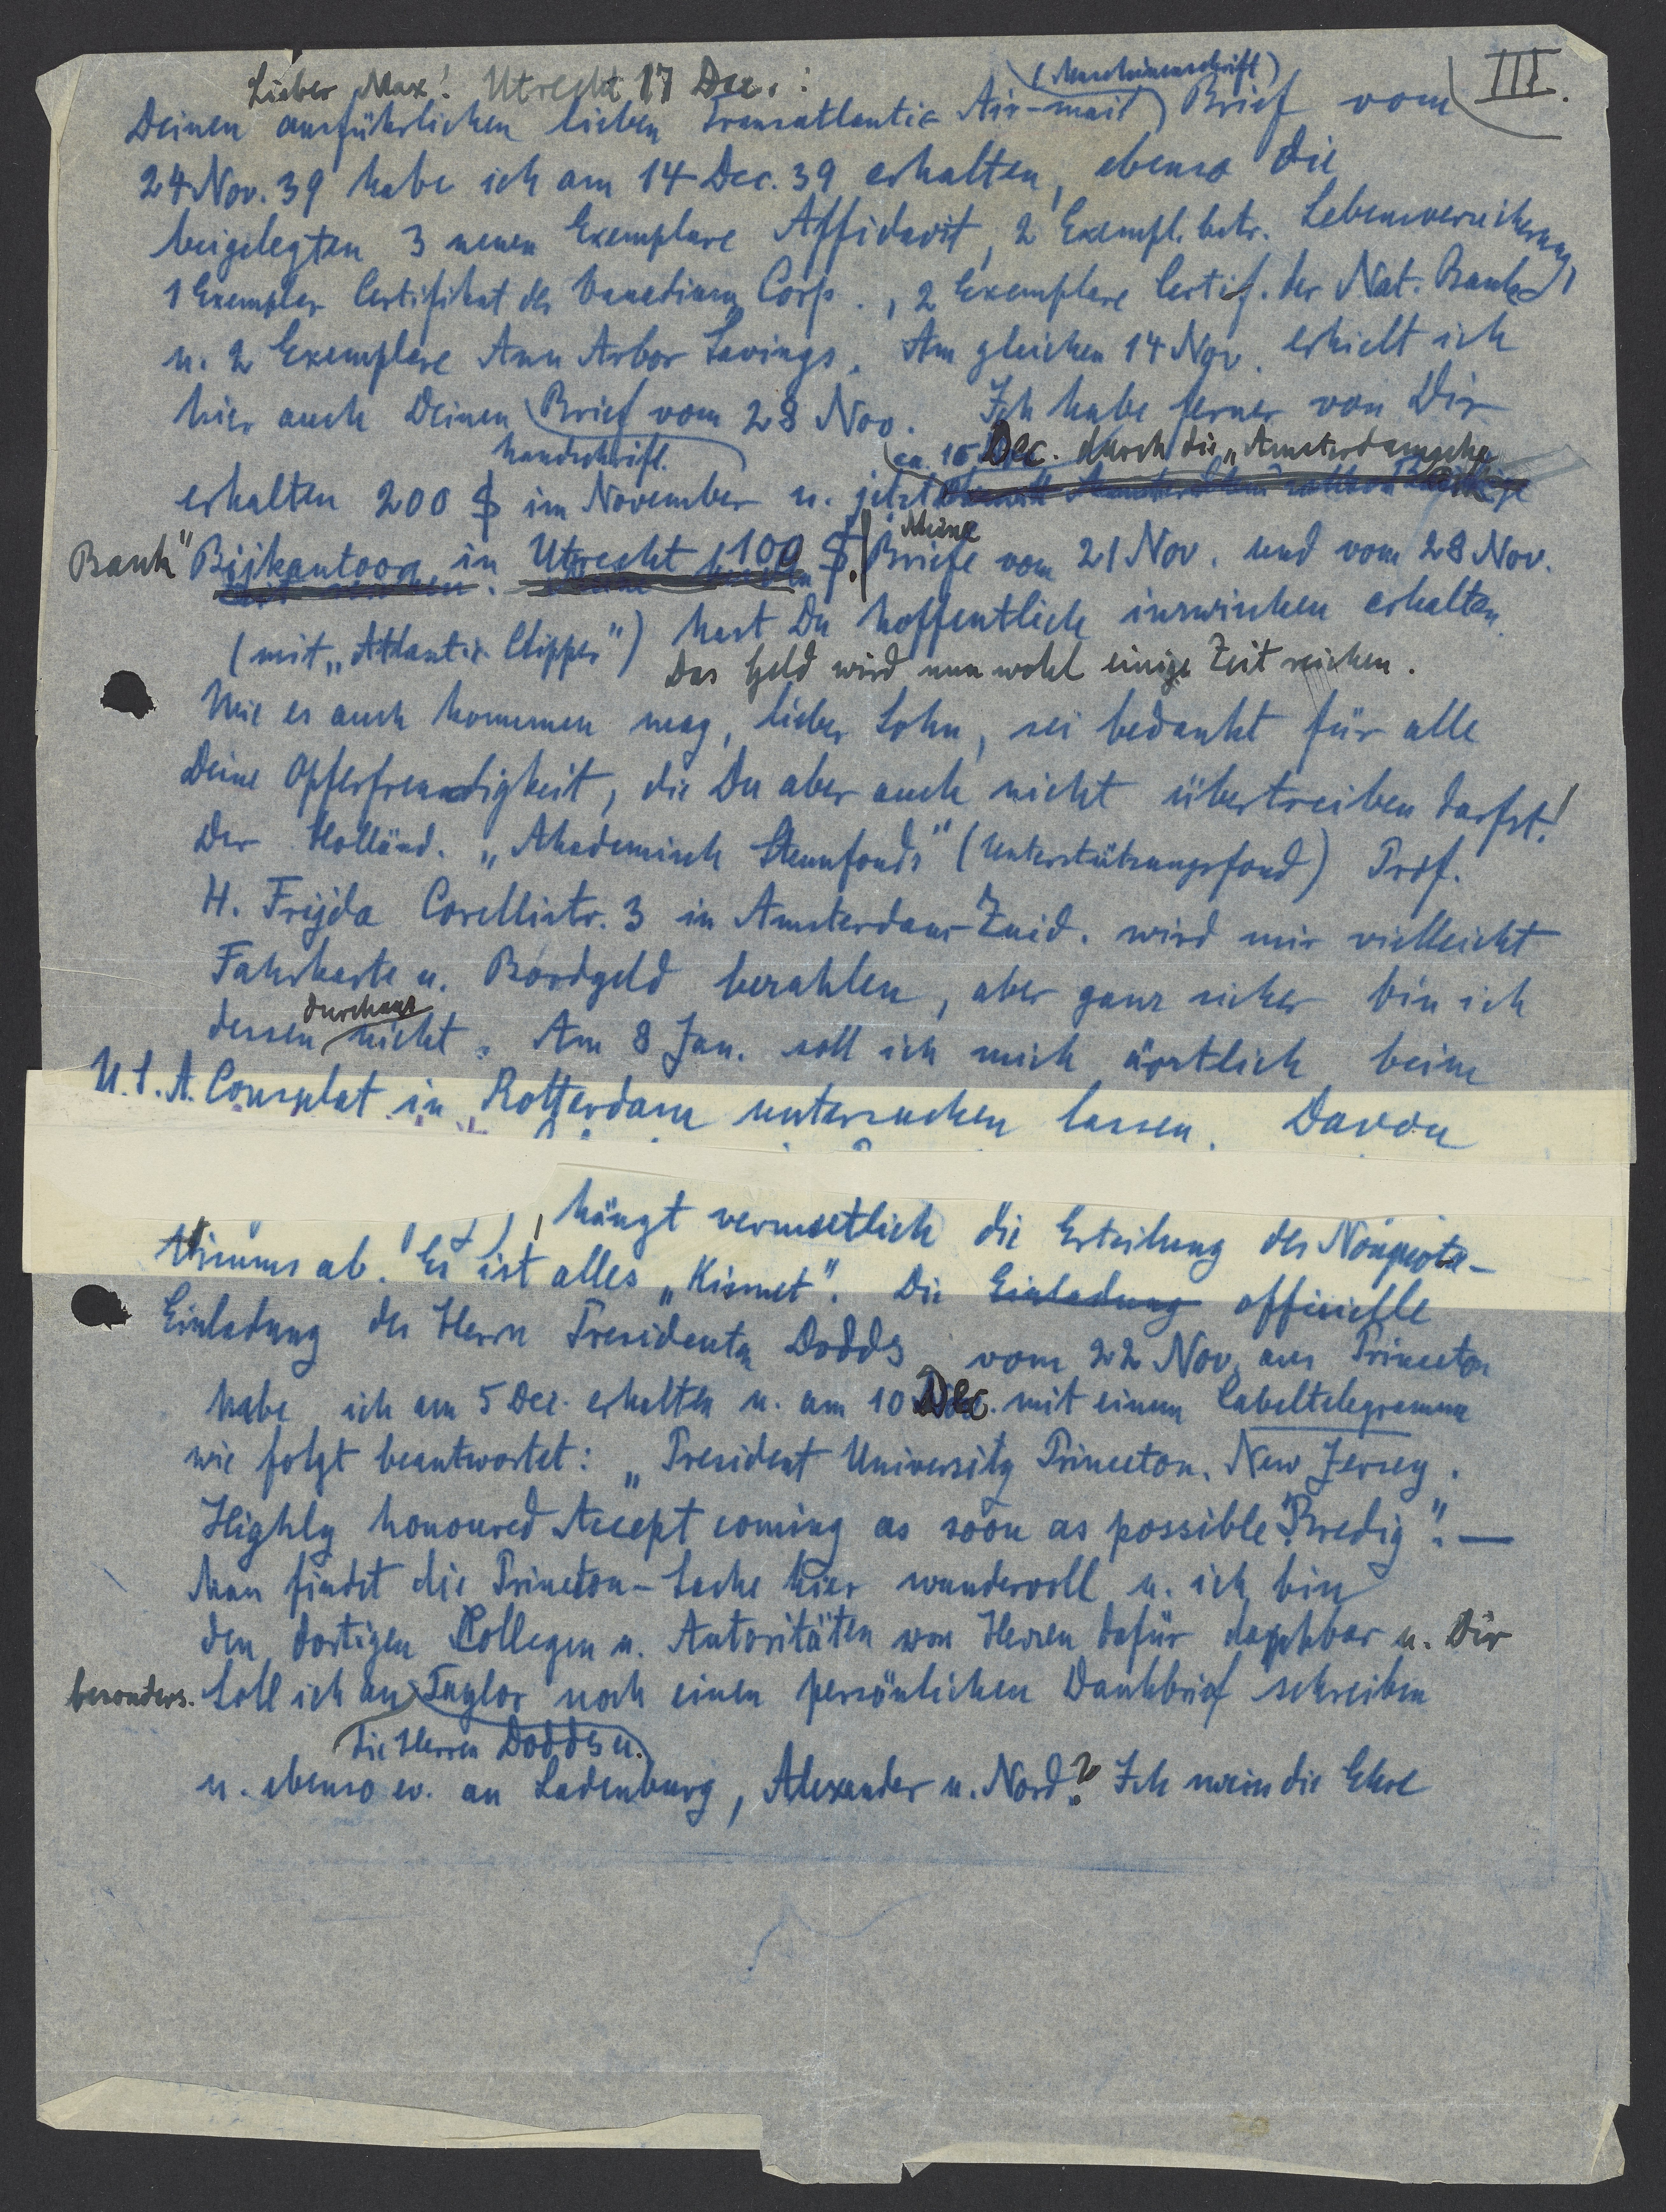 III.
Lieber Max! Utrecht 17 Dec.:
(Maschinenschrift)
Deinen ausführlichen lieben Transatlantic Air-mail Brief vom
24 Nov. 39 habe ich am 14 Dec. 39 erhalten, ebenso die
beigelegten 3 neuen Exemplare Affidavit, 2 Exempl. betr. Lebensversicherung,
1 Exemplar Certifikat der Vanadium Corp., 2 Exemplare Certif. der Nat. Bank
u. 2 Exemplare Ann Arbor Savings. Am gleichen 14 Nov. erhielt ich
hier auch Deinen Brief vom 28 Nov. Ich habe ferner von Dir
handschriftl.
ca. 16 Dec. durch die „Amsterdamsche
erhalten 200 $ im November u. jetzt
Bank" Bijkantoor in Utrecht 100 $. Meine Briefe vom 21 Nov. und vom 28 Nov.
(mit „Atlantic Clipper") hast Du hoffentlich inzwischen erhalten.
Das Geld wird nun wohl einige Zeit reichen.
Wie es auch kommen mag, lieber Sohn, sei bedankt für alle
Deine Opferfreudigkeit, die Du aber auch nicht übertreiben darfst!
Der Holländ. „Akademisch Steunfonds" (Unterstützungsfond) Prof.
H. Frijda Corellistr. 3 in Amsterdam-Zuid. wird mir vielleicht
Fahrkarte u. Bordgeld bezahlen, aber ganz sicher bin ich
dessen durchaus nicht. Am 8 Jan. soll ich mich ärztlich beim
U.S.A. Consulat in Rotterdam untersuchen lassen. Davon
hängt vermutlich die Erteilung des Nonquota-
Visums ab. Es ist alles „Kismet". Die Einladung officielle
Einladung des Herrn Presidenten Dodds vom 22 Nov. aus Princeton
habe ich am 5 Dec. erhalten u. am 10 Dec. mit einem Cabeltelegramm
wie folgt beantwortet: „President University Princeton. New Jersey.
Highly honoured Accept coming as soon as possible. Bredig". —
Man findet die Princeton-Sache hier wundervoll u. ich bin
den dortigen Collegen u. Autoritäten von Herzen dafür dankbar u. Dir
besonders. Soll ich an Taylor noch einen persönlichen Dankbrief schreiben
die Herren Dodds u.
u. ebenso ev. an Ladenburg, Alexander u. Nord? Ich weiss die Ehre